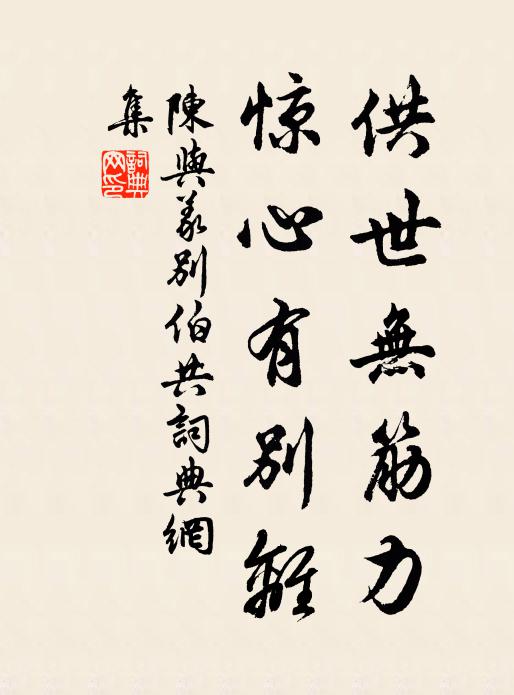 供世無筋力
惊心有别離
陳與義别伯共詞典網
集
詞典網印